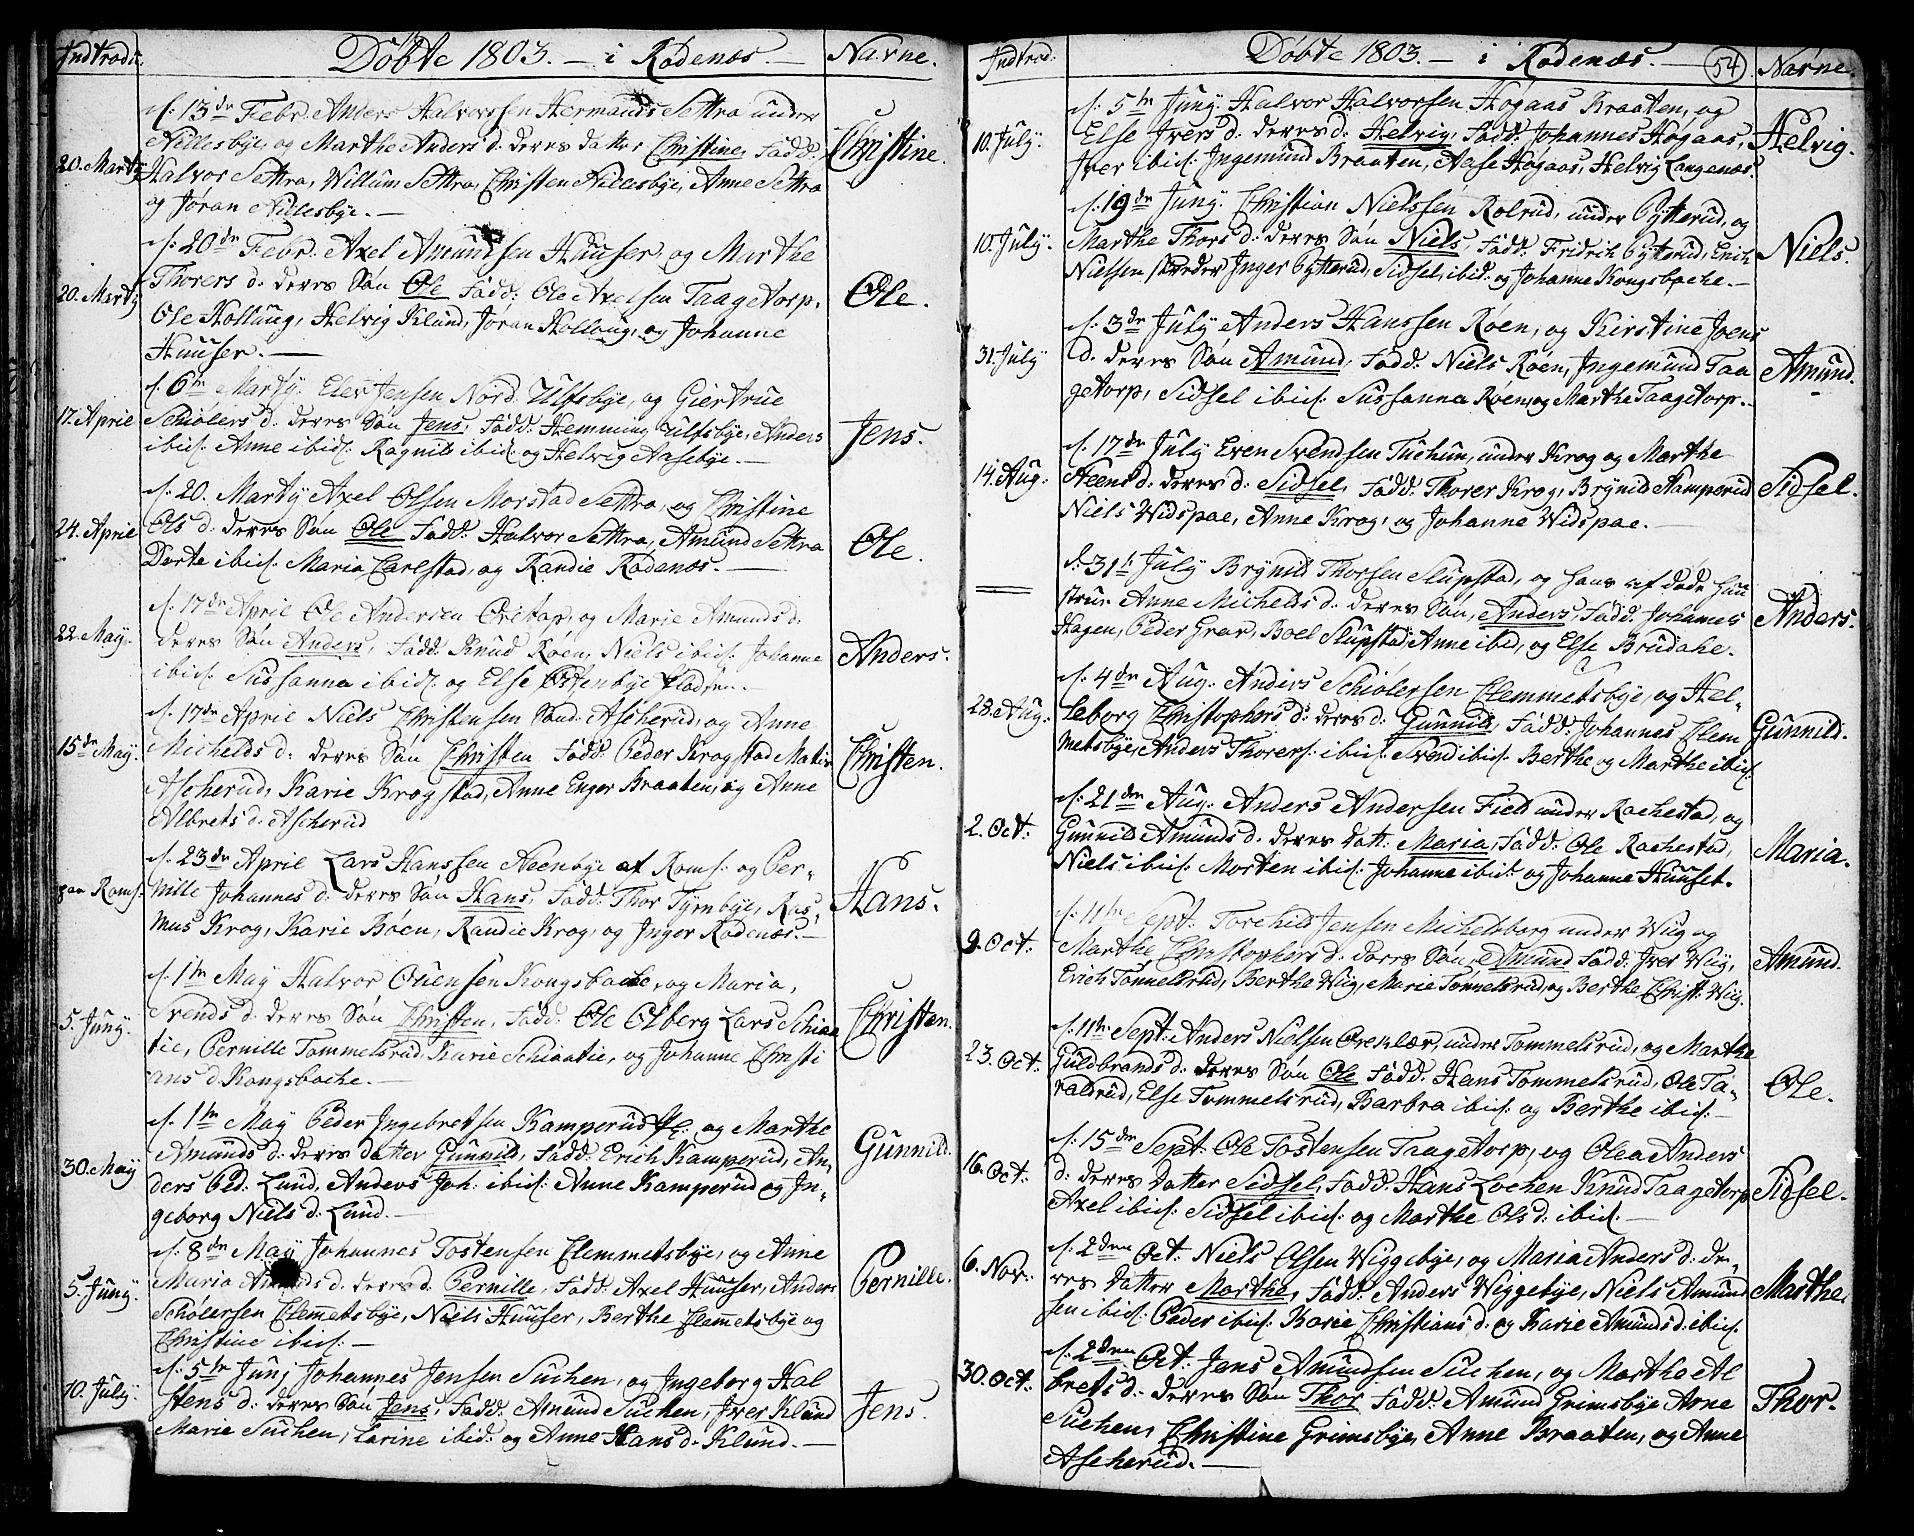 Indtrod:
Døbte 1803. — i Rødenæs. —
Navne.
d: 13de Febr. Anders Halvorssen Hermands Settra under
Nillesbye, og Marthe Anders d: deres datter Christine, Fadd:
20. Martÿ
Halvor Settra, Willum Settra, Christen Nillesbye, Anne Settra
og Jøran Nillesbye. —
Christine.
d: 20de Febr: Axel Amundsen Huuser, og Marthe
Thorers d: deres Søn Ole Fadd: Ole Axelsen Taagetorp,
20. Martÿ
Ole Kollaug, Helvig Klund, Jøran Kollaug, og Johanne
Huuser. —
Ole.
d. 6te Martÿ: Elev Jensen Nord: Ulfsbye, og Giertrue
Schiølers d: deres Søn Jens, Fadd: Hemming Ulfsbye, Anders
17. April
ibid: Anne ibid: Ragnild ibid: og Helvig Aasebye. —
Jens.
d. 20. Martÿ Axel Olsen Morstad Settra, og Christine
Ols d: deres Søn Ole Fadd: Halvor Settra, Amund Settra
24. April
Dorte ibid: Maria Carlstad, og Randie Rødenæs. —
Ole.
d. 17de April Ole Andersen, og Marie Amunds d:
deres Søn Anders, Fadd: Knud Røen, Niels ibid: Johanne
22. Maÿ
ibid: Sussanna ibid: og Else Østenbye Pladsen. —
Anders.
d. 17de April Niels Christensen Sønd: Ascherud, og Anne
Michelds d: deres Søn Christen Fadd: Peder Krogstad
15de Maÿ
Ascherud, Karie Krogstad, Anne Enger Braaten, og Anne
Albrets d: Ascherud
Christen.
d. 23de April Lars Hanssen Heenbye af Roms: og Per-
nille Johannes d: deres Søn Hans, Fadd: Thor Tyrnbye, Ras-
paa Roms:
mus Krog, Karie Røen, Randie Krog, og Inger Rødenæs. —
Hans.
d. 1te May Halvor Kongsbache, og Maria
Svends d: deres Søn Christen, Fadd: Ole Olberg Lars Schiaa
5. Junÿ
tie, Pernille Tommelsrud, Karie Schiaatie, og Johanne Christi
ans d Kongsbache. —
Christen.
d. 1te May Peder Ingebretsen Kamperud og Marthe
Amunds d: deres datter Gunnild, Fadd: Erich Kamperud, An-
30. Maÿ
ders Ped: Lund, Anders Joh: ibid: Anne Kamperud og In-
geborg Niels d: Lund. —
Gunnild.
d. 8de May Johannes Tostensen Clemmetsbye, og Anne
Maria d: deres d: Pernille, Fadd: Axel Huuser, Anders
5. Junÿ
Schølersen Clemmetsbye, Niels Huuser, Berthe Clemmetsbye og
Christine ibid: —
Pernille.
d. 5te Junÿ Johannes Jensen Suchen, og Ingeborg Hal
stens d: deres Søn Jens, Fadd: Amund Suchen, Iver Klund
10. Julÿ
Marie Suchen, Carine ibid: og Anne Hans d: Klund. —
Jens.
Indtrod:
Døbte 1803. — i Rødenæs. —
54
Navne.
d. 5te Junÿ. Halvor Halvorsen Høgaas Braaten, og
Else Ivers d: deres d: Helvig, Fadd: Johannes Høgaas,
10. Julÿ.
Iver ibid: Ingemund Braaten, Aase Høgaas, Helvig Langenæs.
Helvig.
d. 19de Junÿ. Christian Nielssen Rolrud, under Øytterud, og
Marthe Thors d: deres Søn Niels, Fadd: Fridrich Øytterud, Erich
10. Julÿ.
Nielssen, Inger Øytterud, Sidsel ibid: og Johanne Kongsbache. —
Niels.
d. 3de July Anders Hanssen Røen, og Kirstine Joens
d: deres Søn Amund, Fadd: Niels Røen, Ingemund Taa
31. Julÿ
getorp, Sidsel ibid: Sussanna Røen, og Marthe Taagetorp. —
Amund.
d. 17de July Even Svendsen Tuchun, under Krog og Marthe
Steens d: deres d: Sidsel, Fadd: Thorer Krog, Brynild Kamperud
14. Aug.
Niels Widspae, Anne Krog, og Johanne Widspae. —
Sidsel.
d. 31te July Brynild Thorsen Slupstad, og hans af døde Huu
strue Anne Michelds d: deres Søn, Anders, Fadd: Johannes
Hagen, Peder Grav, Boel Slupstad, Anne ibid, og Else Brudahe. —
Anders.
d. 4de Aug: Anders Schiølersen Clemmetsbye, og Hel-
leborg Christophers d: deres d: Gunnild, Fadd: Johannes Clem
28. Aug.
metsbye, Anders Thorers: ibid: Svend ibid: Berthe og Marthe ibid:
Gunnild.
d. 21de Aug: Anders Andersen Field under Rachestad, og
Gunnild Amunds d: deres datt: Maria, Fadd: Ole Rachestad,
2. Oct:
Niels ibid: Morten ibid: Johanne ibid: og Johanne Huuset.
Maria.
d. 11te Sept: Torchild Jensen Michelsborg under Wiig og
Marthe Christophers d: deres Søn, Amund Fadd: Iver Wiig,
9. Oct:
Erich Tømmelsrud, Berthe Wiig, Marie Tømmelsrud, og Berthe Christ: Wiig.
Amund.
d. 11te Sept: Anders Nielsen, under Tommelsrud, og Marthe
Guldbrands d: deres Søn Ole Fadd: Hans Tommelsrud, Ole Ta-
23. Oct:
raldrud, Else Tommelsrud, Barbra ibid: og Berthe ibid: —
Ole.
d. 15de Sept: Ole Tostensen Taagetorp, og Olea Anders
d: deres datter Sidsel, Fadd: Hans Lochen Knud Taagetorp
16. Oct:
Axel ibid: Sidsel ibid: og Marthe Ols d: ibid: —
Sidsel.
d. 2den Oct: Niels Olsen Wiggebye, og Maria Anders d: de-
res datter Marthe, Fadd: Anders Wiggebye, Niels Amund
6. Nov:
sen ibid: Peder ibid: Karie Christians d: og Karie Amunds d: ibid:
Marthe.
d. 2den Oct: Jens Amundsen Suchen, og Marthe Al
brets d: deres Søn Thor Fadd: Amund Grimsbye Arne
30. Oct:
Suchen, Christine Grimsbye, Anne Braaten, og Anne
Ascherud. —
Thor.